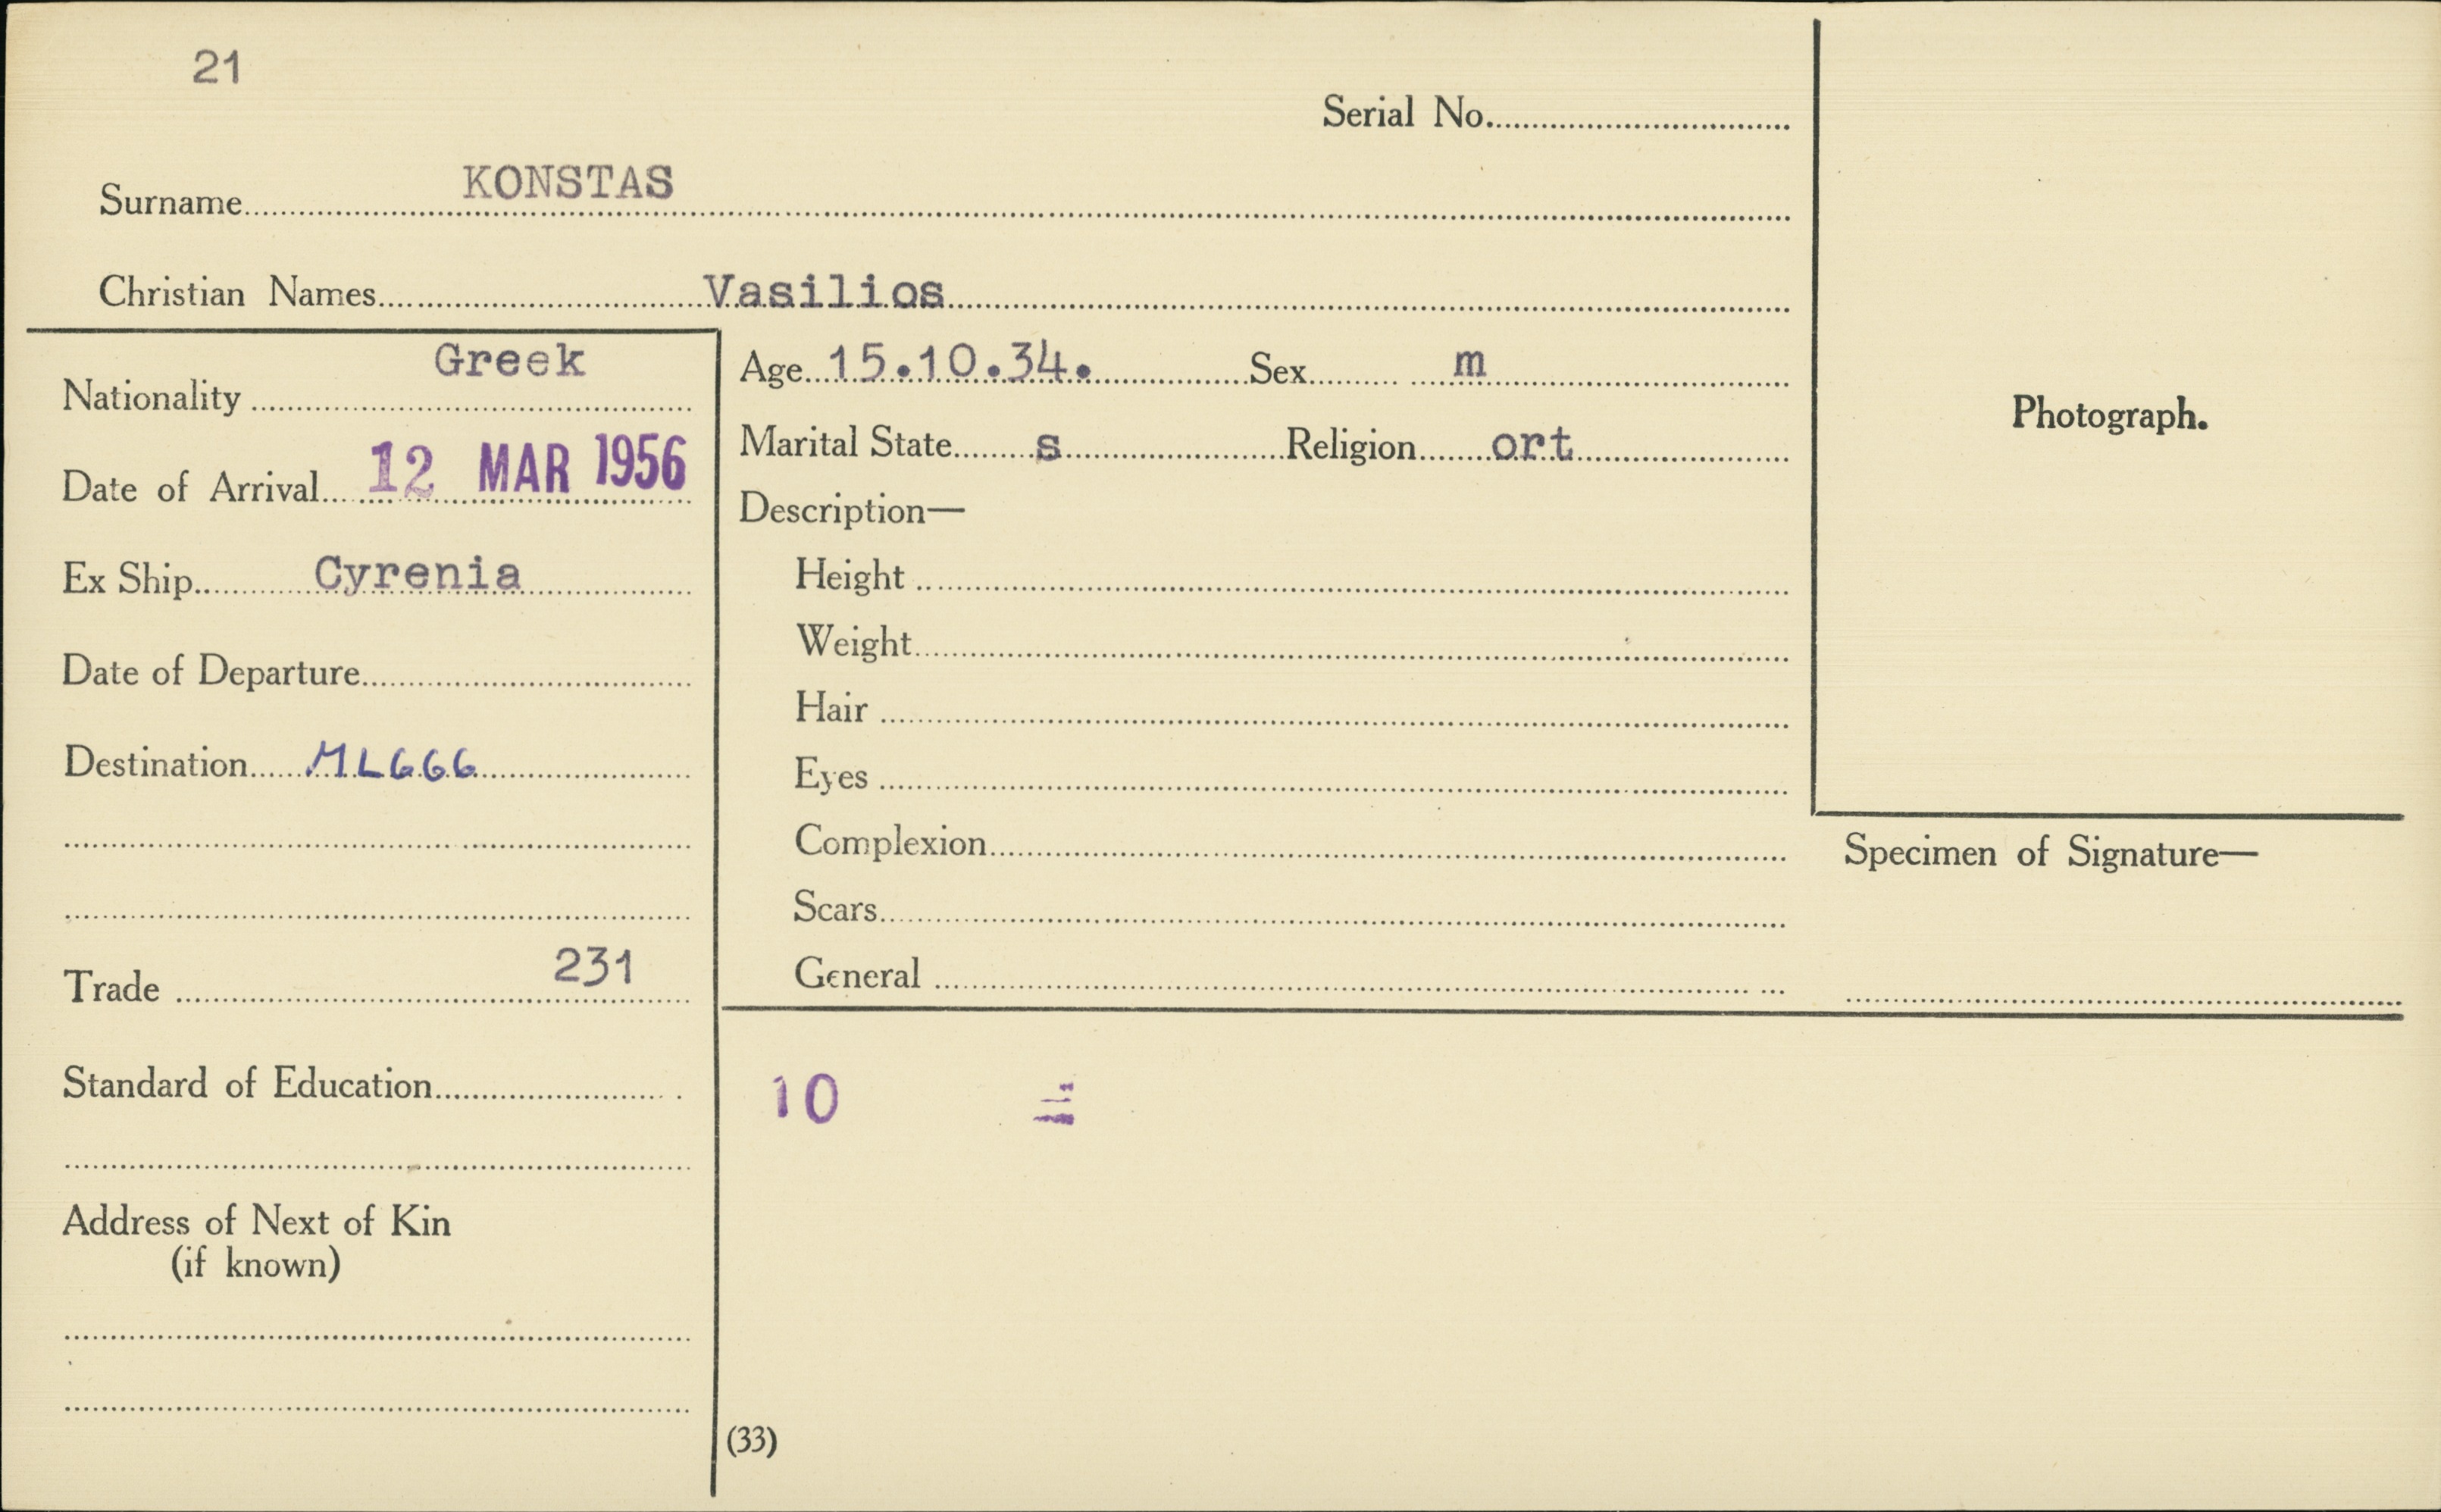 21
Serial No.
Surname KONSTAS
Christian Names Vasilios
Nationality Greek
Date of Arrival 12 MAR 1956
Ex Ship Cyrenia
Date of Departure
Destination MLGGG
Trade 231
Standard of Education
Address of Next of Kin
(if known)
Age 15.10.34. Sex m
Marital State s Religion ort
Description—
Height
Weight
Hair
Eyes
Complexion
Scars
General
10
(33)
Photograph.
Specimen of Signature—